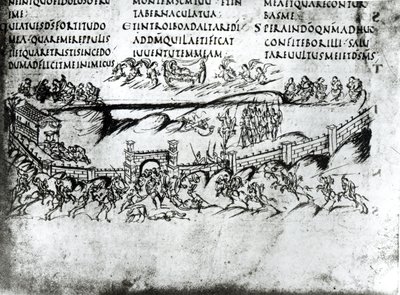 UIATUESDSFORTITUDO
MEAQUAREMEREPPULIS
TIETQUARETRISTISINCEDO
DUMADFLICITMEINIMICUS
MONTEMSCMTUU ETIN
TABERNACULATUA
ETINTROIBOADALTAREDI
ADDMQUILAETIFICAT
IUUENTUTEMMEAM
MEAETQUARECONTUR
BASME
SPERAINDOQNMADHUC
CONFITEBORILLI SALU
TAREUULTUSMEIETDSMS